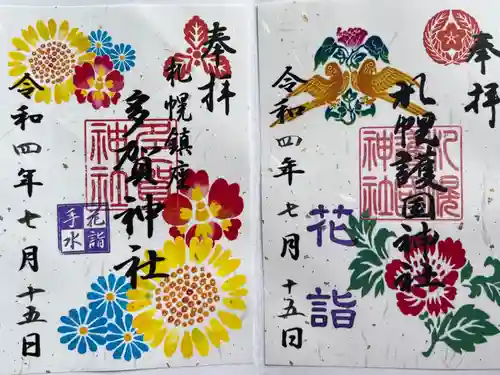 奉拝
札幌鎮座
多賀神社
多賀
神社
花詣
手水
令和四年七月十五日
奉拝
札幌護国神社
札幌
護国
神社
花詣
令和四年七月十五日